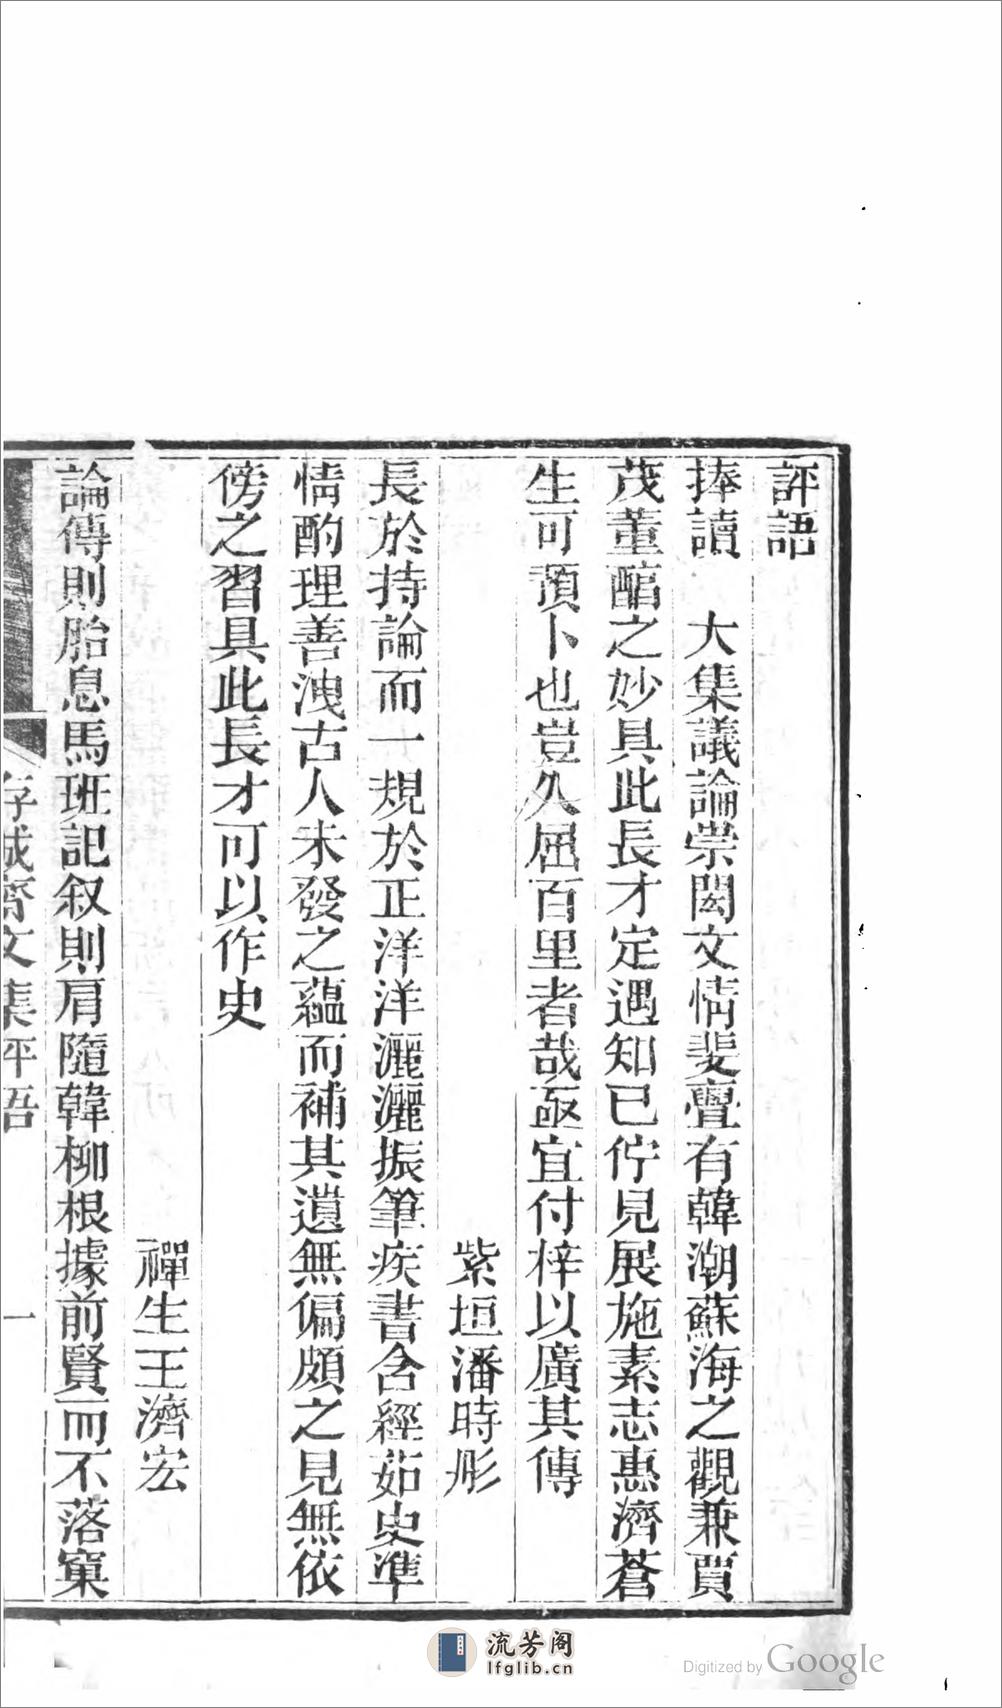 評語
捧讀　大集議論崇閎文情斐亹有韓潮蘇海之觀兼賈
茂董醇之妙具此長才定遇知已佇見展施素志惠濟蒼
生可預卜也豈久屈百里者哉亟宜付梓以廣其傳
紫垣潘時彤
長於持論而一規於正洋洋灑灑振筆疾書含經茹史準
情酌理善洩古人未發之蘊而補其遺無偏頗之見無依
傍之習具此長才可以作史
禪生王濟宏
論傳則胎息馬班記叙則肩隨韓柳根據前賢而不落窠
存誠齋文集評語
一
流芳阁
lfglib.cn
Digitized by Google